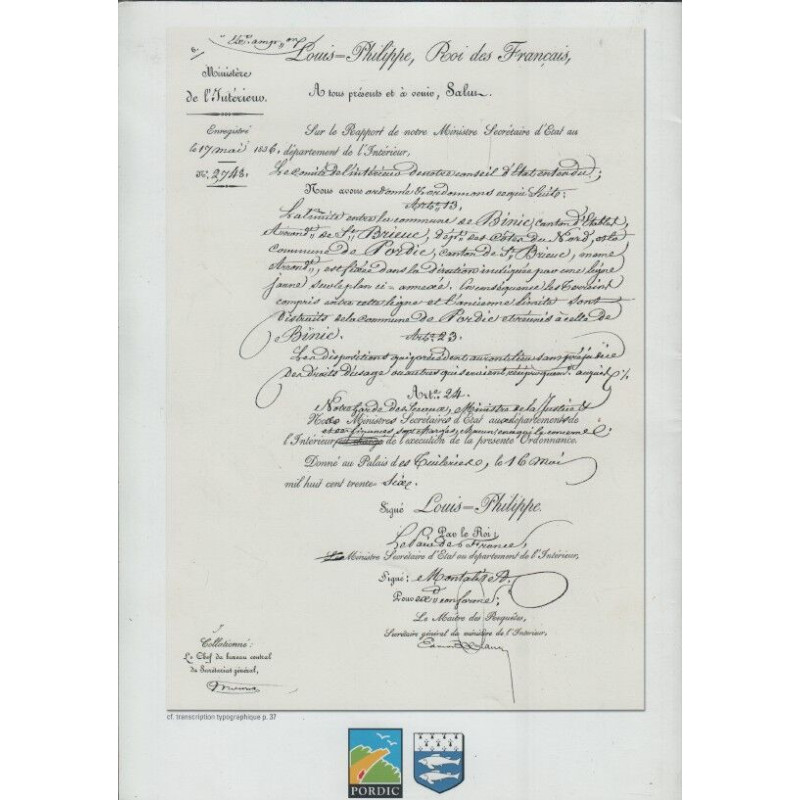 Louis=Philippe, Roi des Français,
Ministère
de l'Intérieur.
A tous présents et à venir, Salut.
Enregistré
le 17 mai 1836.
N°. 2748.
Sur le Rapport de notre Ministre Secrétaire d'Etat au
département de l'Intérieur,
Le comité de l'intérieur de notre conseil d'Etat entendu;
Nous avons ordonné & ordonnons ce qui suit:
La limite entre la commune de Binic, canton d'Etables,
Arrondt. de St. Brieuc, dépt. des Côtes du Nord, et la
commune de Pordic, canton de St. Brieuc, même
Arrondt., est fixée dans la direction indiquée par une ligne
jaune sur le plan ci-annexé. En conséquence les terrains
compris entre cette ligne et l'ancienne limite sont
distraits de la commune de Pordic et réunis à celle de
Binic.
Les dispositions qui précèdent auront lieu sans préjudice
des droits d'usage ou autres qui seraient réciproquemt. acquis
Notre Garde des Sceaux, Ministre de la Justice &
Nos Ministres Secrétaires d'Etat aux départements de
l'Intérieur de l'exécution de la présente Ordonnance.
Donné au Palais des Tuileries, le 16 Mai
mil huit cent trente-Six.
Signé Louis=Philippe.
Par le Roi:
Le Pair de France,
Ministre Secrétaire d'Etat au département de l'Intérieur,
Signé: Montalivet.
Pour conforme:
Le Maître des Requêtes,
Secrétaire général du ministère de l'Intérieur,
Collationné:
Le Chef du bureau central
du Secrétariat général,
cf. transcription typographique p. 37
PORDIC